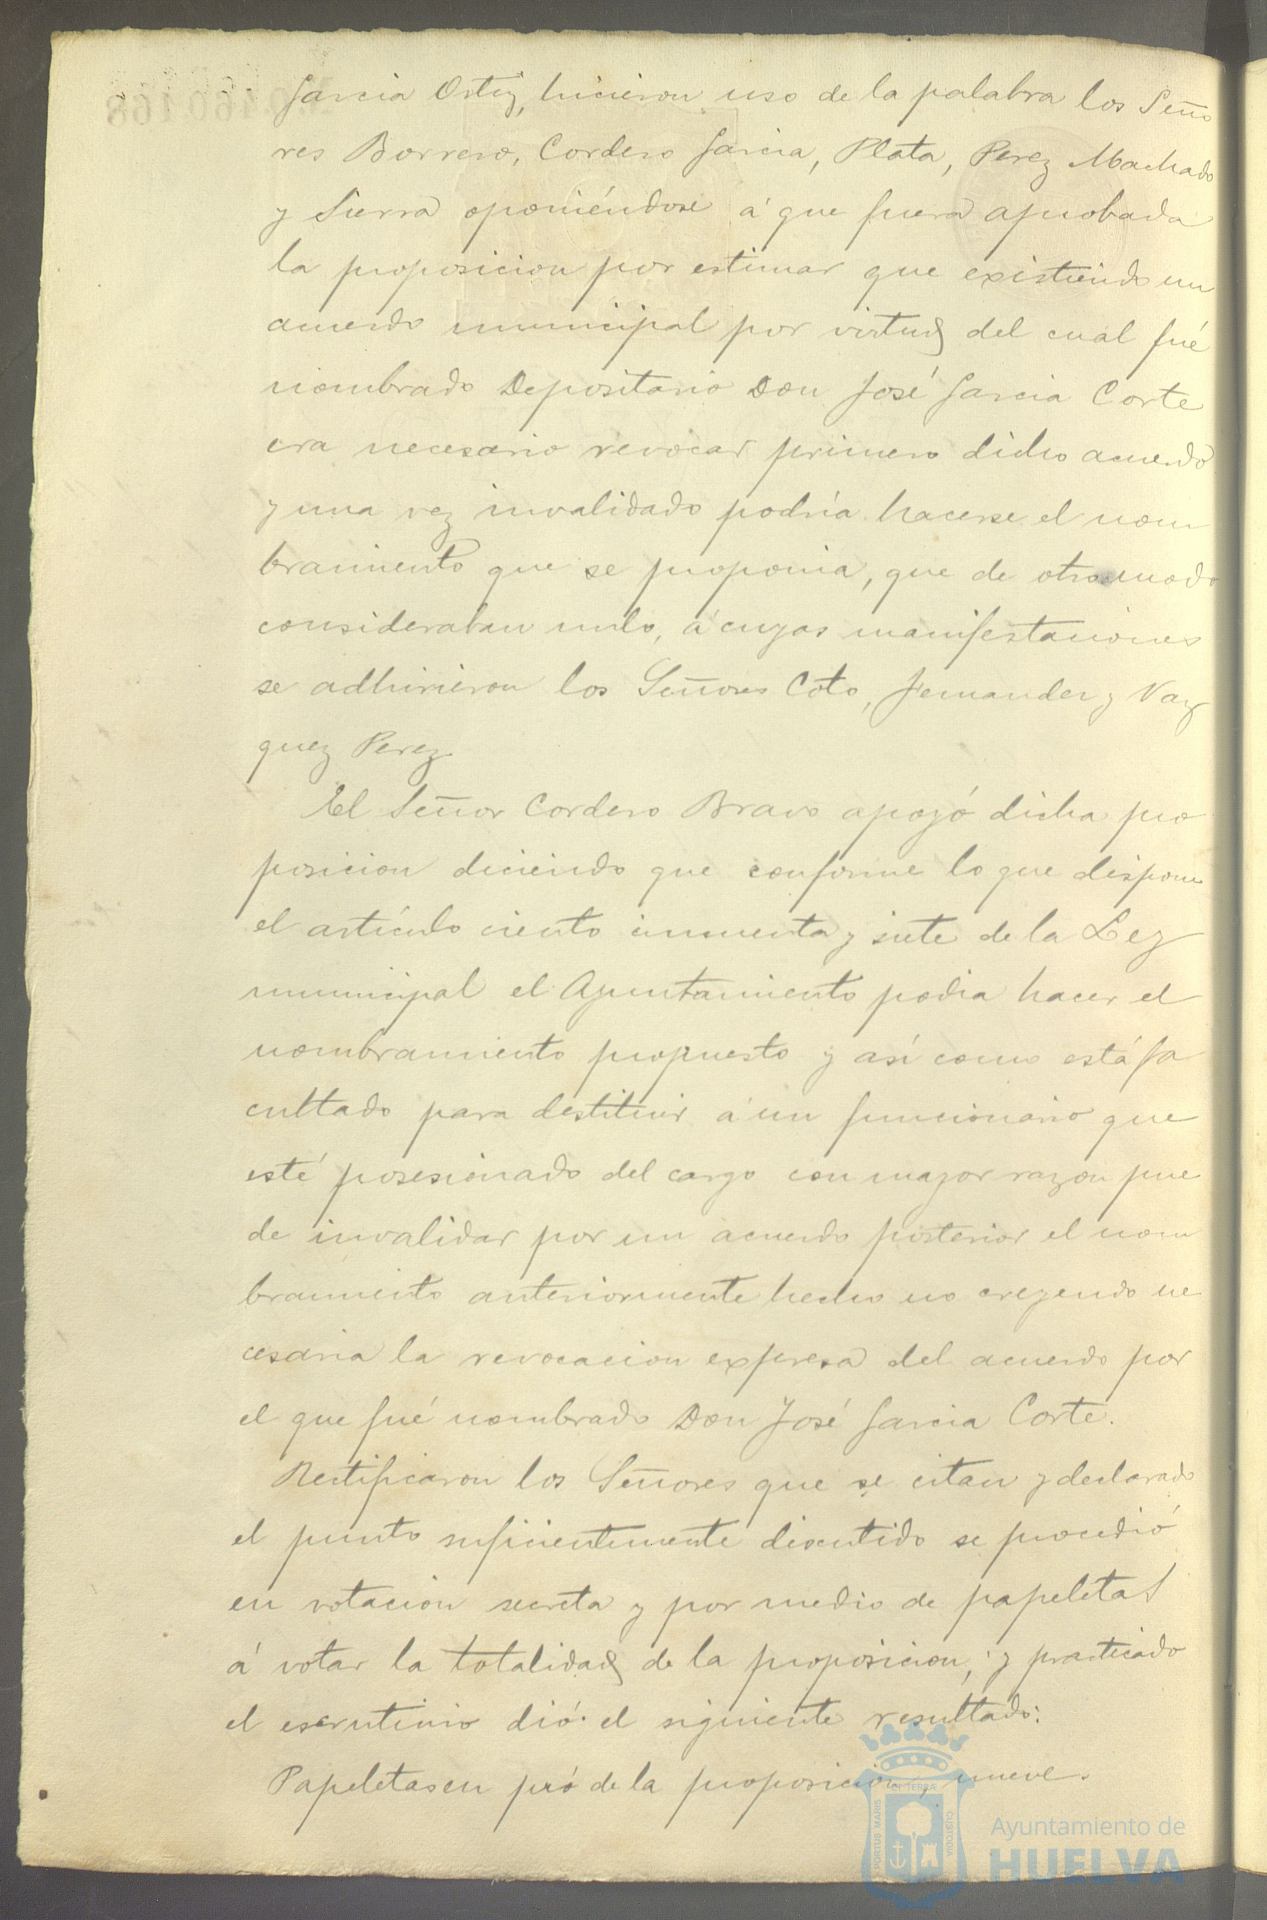 Garcia Ortiz, hicieron uso de la palabra los Seño
res Borrero, Cordero Garcia, Plata, Perez Machado
y Sierra oponiéndose á que fuera aprobada
la proposicion por estimar que existiendo un
acuerdo municipal por virtud del cual fué
nombrado Depositario Don José Garcia Corte
era necesario revocar primero dicho acuerdo
y una vez invalidado podría hacerse el nom
bramiento que se proponia, que de otro modo
consideraban nulo, á cuyas manifestaciones
se adhirieron los Señores Coto, Fernandez y Vaz
quez Perez.
El Señor Cordero Bravo apoyó dicha pro
posicion diciendo que conforme lo que dispone
el artículo ciento cincuenta y siete de la Ley
municipal el Ayuntamiento podia hacer el
nombramiento propuesto y así como está fa
cultado para destituir á un funcionario que
esté posesionado del cargo con mayor razon pue
de invalidar por un acuerdo posterior el nom
bramiento anteriormente hecho no creyendo ne
cesaria la revocacion expresa del acuerdo por
el que fué nombrado Don José Garcia Corte.
Rectificaron los Señores que se citan y declarado
el punto suficientemente discutido se procedió
en votacion secreta y por medio de papeletas
á votar la totalidad de la proposicion, y practicado
el escrutinio dió el siguiente resultado:
Papeletas en pró de la proposicion, nueve.
PORTUS MARIS
ET TERRÆ
CUSTODIA
Ayuntamiento de
HUELVA